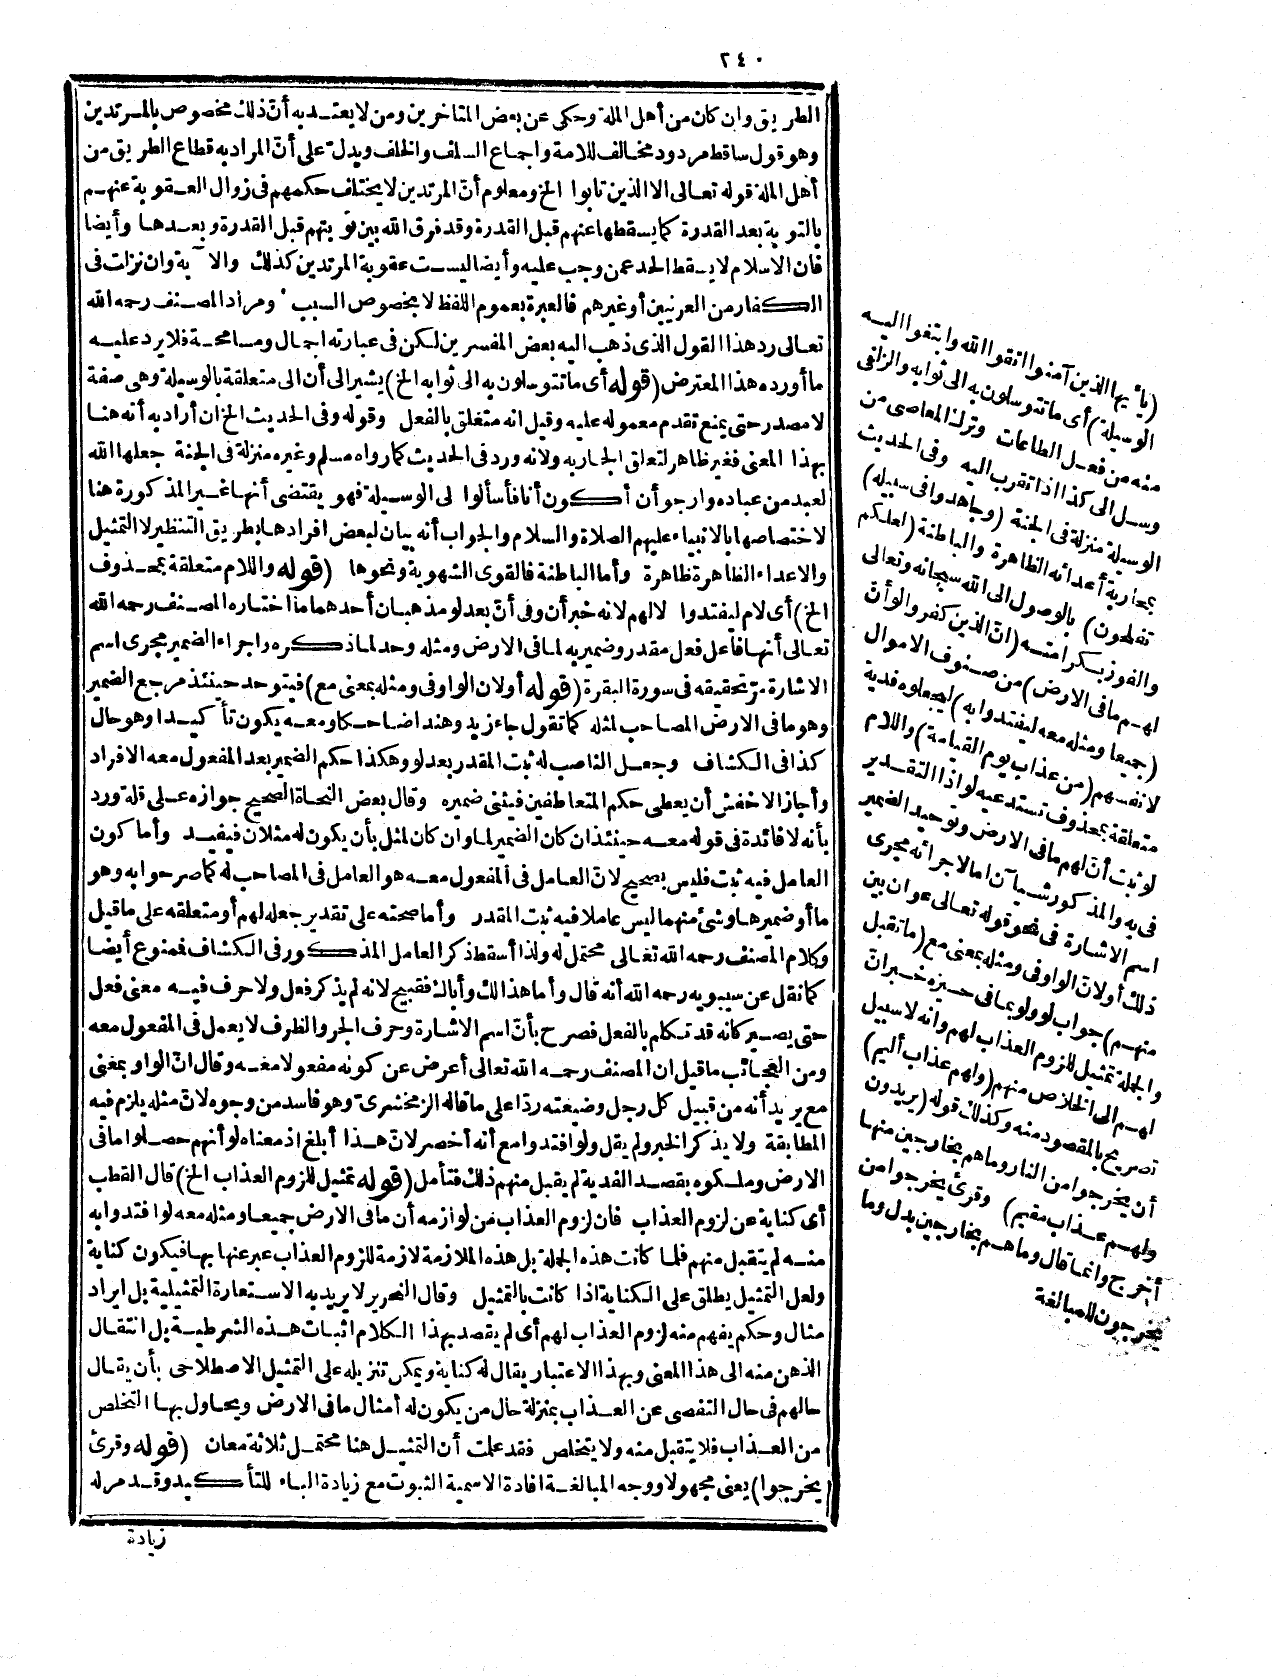 ٢٤٠
الطريق وان كان من أهل الملة وحكى عن بعض المتاخرين ومن لا يعتد به أنّ ذلك مخصوص بالمرتدين
وهو قول ساقط مردود مخالف للامة واجماع السلف والخلف ويدل على أنّ المراد به قطاع الطريق من
أهل الملة قوله تعالى الا الذين تابوا الخ ومعلوم أنّ المرتدين لا يختلف حكمهم فى زوال العقوبة عنهم
بالتوبة بعد القدرة كما يسقطها عنهم قبل القدرة وقد فرق الله بين توبتهم قبل القدرة وبعدها وأيضا
فان الاسلام لا يسقط الحد عمن وجب عليه وأيضا ليست عقوبة المرتدين كذلك والآية وان نزلت فى
الكفار من العرنيين أو غيرهم فالعبرة بعموم اللفظ لا بخصوص السبب ومراد المصنف رحمه الله
تعالى رد هذا القول الذى ذهب اليه بعض المفسرين لكن فى عبارته اجمال ومسامحة فلا يرد عليه
ما أورده هذا المعترض (قوله أى ما تتوسلون به الى ثوابه الخ) يشير الى أن الى متعلقة بالوسيلة وهى صفة
لا مصدر حتى يمنع تقدم معموله عليه وقيل انه متعلق بالفعل وقوله وفى الحديث الخ ان أراد به أنه هنا
بهذا المعنى فغير ظاهر لتعلق الجار به ولانه ورد فى الحديث كما رواه مسلم وغيره منزلة فى الجنة جعلها الله
لعبد من عباده وارجو أن أكون أنا فأسألوا لى الوسيلة فهو يقتضى أنها غير المذكورة هنا
لاختصاصها بالانبياء عليهم الصلاة والسلام والجواب أنه بيان لبعض افرادها بطريق التنظير لا التمثيل
والاعداء الظاهرة ظاهرة وأما الباطنة فالقوى الشهوية ونحوها (قوله واللام متعلقة بمحذوف
الخ) أى لام ليفتدوا لا لهم لانه خبر أن وفى أنّ بعد لو مذهبان أحدهما ما اختاره المصنف رحمه الله
تعالى أنها فاعل فعل مقدر وضمير به لما فى الارض ومثله وحد لما ذكره واجراء الضمير مجرى اسم
الاشارة مرّ تحقيقه فى سورة البقرة (قوله أولان الواو فى ومثله بمعنى مع) فيتوحد حينئذ مرجع الضمير
وهو ما فى الارض المصاحب لمثله كما تقول جاء زيد وهندا ضاحكا ومعه يكون تأكيدا وهو حال
كذا فى الكشاف وجعل الناصب له ثبت المقدر بعد لو وهكذا حكم الضمير بعد المفعول معه الافراد
وأجاز الاخفش أن يعطى حكم المتعاطفين فيثنى ضميره وقال بعض النحاة الصحيح جوازه على قلة ورد
بأنه لا فائدة فى قوله معه حينئذ ان كان الضمير لما وان كان لمثل بأن يكون له مثلان فيفيد وأما كون
العامل فيه ثبت فليس بصحيح لانّ العامل فى المفعول معه هو العامل فى المصاحب له كما صرحوا به وهو
ما أو ضميرها وشئ منهما ليس عاملا فيه ثبت المقدر وأما صحته على تقدير جعله لهم أو متعلقه على ما قيل
وكلام المصنف رحمه الله تعالى محتمل له ولذا أسقط ذكر العامل المذكور فى الكشاف فممنوع أيضا
كما نقل عن سيبويه رحمه الله أنه قال وأما هذا لك وأباك فقبيح لانه لم يذكر فعل ولا حرف فيه معنى فعل
حتى يصير كانه قد تكلم بالفعل فصرح بأنّ اسم الاشارة وحرف الجر والظرف لا يعمل فى المفعول معه
ومن العجائب ما قيل ان المصنف رحمه الله تعالى أعرض عن كونه مفعولا معه وقال انّ الواو بمعنى
مع يريد أنه من قبيل كل رجل وضيعته ردّا على ما قاله الزمخشرى وهو فاسد من وجوه لانّ مثله يلزم فيه
المطابقة ولا يذكر الخبر ولم يقل ولو افتدوا مع أنه أخصر لانّ هذا أبلغ اذ معناه لو أنهم حصلوا ما فى
الارض وملكوه بقصد الفدية لم يقبل منهم ذلك فتأمل (قوله تمثيل للزوم العذاب الخ) قال القطب
أى كناية عن لزوم العذاب فان لزوم العذاب من لوازمه أن ما فى الارض جميعا ومثله معه لو افتدوا به
منه لم يتقبل منهم فلما كانت هذه الجملة بل هذه الملازمة لازمة للزوم العذاب عبر عنها بها فيكون كناية
ولعل التمثيل يطلق على الكناية اذا كانت بالتمثيل وقال النحرير لا يريد به الاستعارة التمثيلية بل ايراد
مثال وحكم يفهم منه لزوم العذاب لهم أى لم يقصد بهذا الكلام اثبات هذه الشرطية بل انتقال
الذهن منه الى هذا المعنى وبهذا الاعتبار يقال له كناية ويمكن تنزيله على التمثيل الاصطلاحى بأن يقال
حالهم فى حال التفصى عن العذاب بمنزلة حال من يكون له أمثال ما فى الارض ويحاول بها التخلص
من العذاب فلا يتقبل منه ولا يتخلص فقد علمت أن التمثيل هنا محتمل ثلاثة معان (قوله وقرئ
يخرجوا) يعنى مجهولا ووجه المبالغة افادة الاسمية الثبوت مع زيادة الباء للتأكيد وقد مر له
زيادة
(يأيها الذين آمنوا اتقوا الله وابتغوا اليه
الوسيلة) أى ما تتوسلون به الى ثوابه والزلفى
منه من فعل الطاعات وترك المعاصى من
وسل الى كذا اذا تقرب اليه وفى الحديث
الوسيلة منزلة فى الجنة (وجاهدوا فى سبيله)
بمحاربة أعدائه الظاهرة والباطنة (لعلكم
تفلحون) بالوصول الى الله سبحانه وتعالى
والفوز بكرامته (انّ الذين كفروا لو أنّ
لهم ما فى الارض) من صنوف الاموال
(جميعا ومثله معه ليفتدوا به) ليجعلوه فدية
لانفسهم (من عذاب يوم القيامة) واللام
متعلقة بمحذوف تستدعيه لو اذ التقدير
لو ثبت أنّ لهم ما فى الارض وتوحيد الضمير
فى به والمذكور شيآن اما لاجرائه مجرى
اسم الاشارة فى نحو قوله تعالى عوان بين
ذلك أو لانّ الواو فى ومثله بمعنى مع (ما تقبل
منهم) جواب لو ولو بما فى حيزه خبر انّ
والجملة تمثيل للزوم العذاب لهم وانه لا سبيل
لهم الى الخلاص منهم (ولهم عذاب أليم)
تصريح بالمقصود منه وكذلك قوله (يريدون
أن يخرجوا من النار وما هم بخارجين منها
ولهم عذاب مقيم) وقرئ يخرجوا من
أخرج وانما قال وما هم بخارجين بدل وما
يخرجون للمبالغة